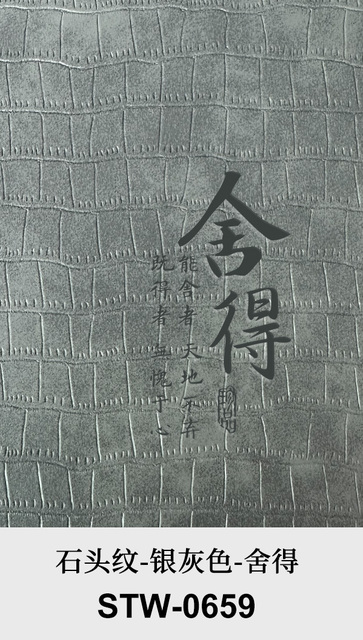 舍得
能舍者 天地不弃
既得者 无愧于心
石头纹-银灰色-舍得
STW-0659